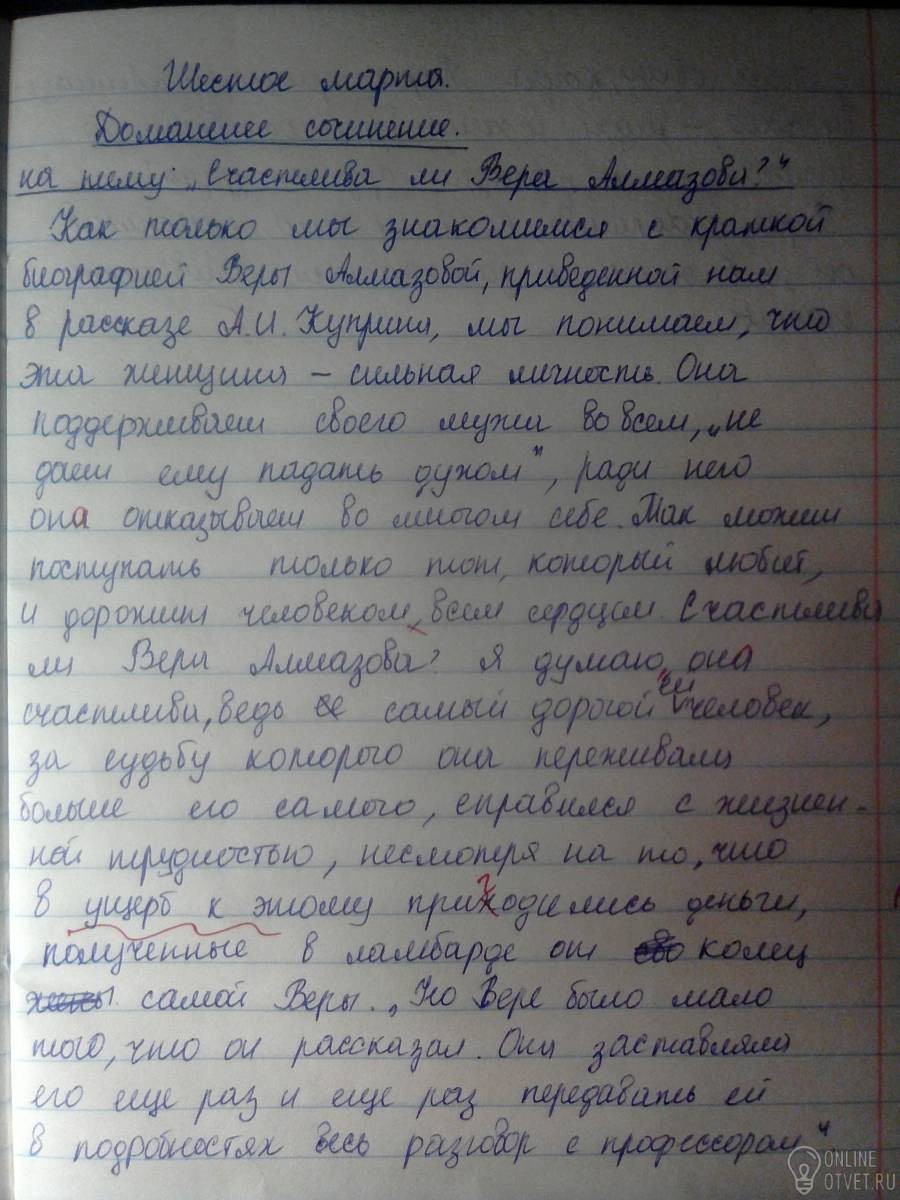 Шестое марта.
Домашнее сочинение.
на тему: „Счастлива ли Вера Алмазова?"
Как только мы знакомимся с краткой
биографией Веры Алмазовой, приведенной нам
в рассказе А.И. Куприна, мы понимаем, что
эта женщина – сильная личность. Она
поддерживает своего мужа во всем, „не
дает ему падать духом", ради него
она отказывает во многом себе. Так может
поступать только тот, который любит,
и дорожит человеком, всем сердцем. Счастлива
ли Вера Алмазова? Я думаю, она
счастлива, ведь ее самый дорогой ей человек,
за судьбу которого она переживала
больше его самого, справился с жизнен-
ной трудностью, несмотря на то, что
в ущерб к этому приходились деньги,
полученные в ламбарде от колец
жены самой Веры. „Но Вере было мало
того, что он рассказал. Она заставляла
его еще раз и еще раз передавать ей
в подробностях весь разговор с профессором"
ONLINE
OTVET.RU